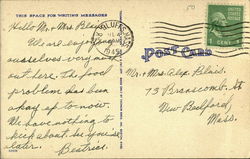 THIS SPACE FOR WRITING MESSAGES
Hello Mr. & Mrs. Blais,
We are enjoying
ourselves very much
out here. The food
problem has been
okay up to now.
We have nothing to
kick about. See you
later.
Beatrice.
POST CARD
Mr. & Mrs. Alex. Blais.
73 Branscomb St.
New Bedford,
Mass.